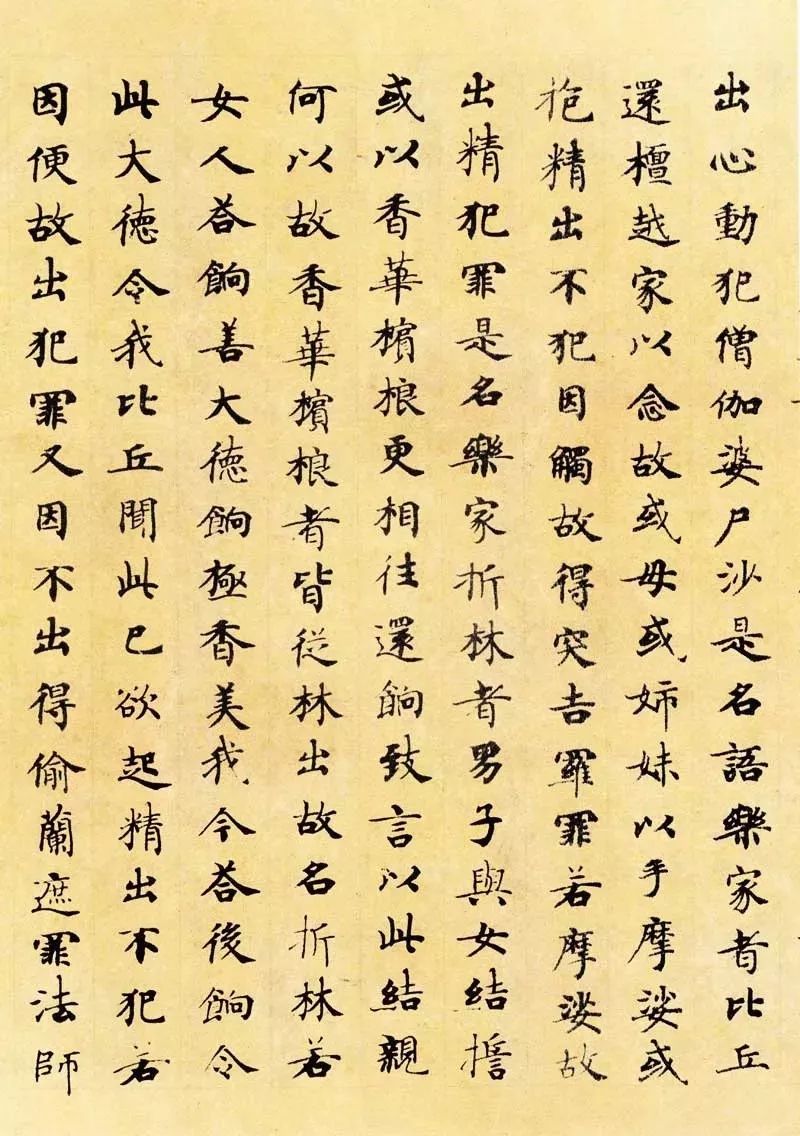 出心動犯僧伽婆尸沙是名語樂家者比丘
還檀越家以念故或母或姉妹以手摩娑或
抱精出不犯因觸故得突吉羅罪若摩娑故
出精犯罪是名樂家折林者男子與女結誓
或以香華檳榔更相往還餉致言以此結親
何以故香華檳榔者皆從林出故名折林若
女人荅餉善大德餉極香美我今荅後餉令
此大德令我比丘聞此已欲起精出不犯若
因便故出犯罪又因不出得偷蘭遮罪法師